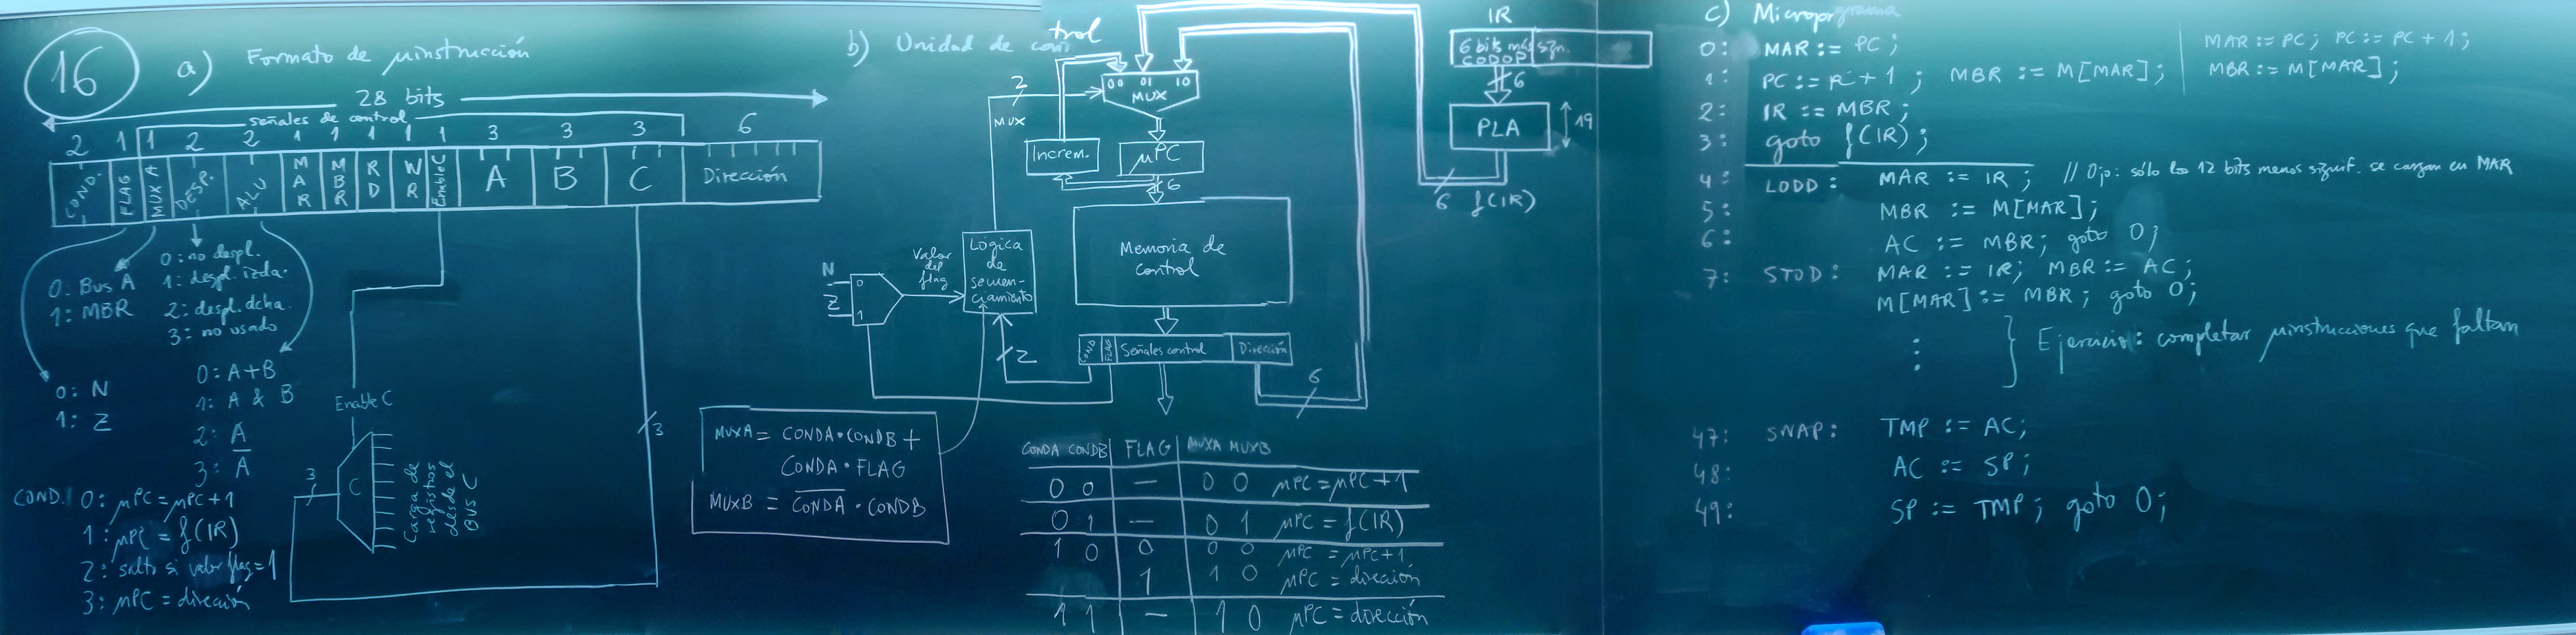 16
a) Formato de μinstrucción
28 bits
señales de control
2 1 1 2 2 1 1 1 1 1 3 3 3 6
COND. FLAG MUX A DESP. ALU MAR MBR RD WR EnableC A B C Dirección
0: Bus A
1: MBR
0: no despl.
1: despl. izda.
2: despl. dcha.
3: no usado
0: N
1: Z
0: A+B
1: A & B
2: A
3: A̅
Enable C
3
C
Carga de registros desde el BUS C
3
COND. 0: μPC = μPC+1
1: μPC = f(IR)
2: salto si valor flag = 1
3: μPC = dirección
b) Unidad de control
00 01 10
MUX
2
MUX
Increm.
μPC
6
Memoria de control
N
Z
0
1
Valor del flag
Lógica de secuenciamiento
2
COND FLAG Señales control Dirección
6
IR
6 bits más sgn.
CODOP
6
PLA
19
6 f(IR)
MUXA = CONDA·CONDB +
CONDA·FLAG
MUXB = C̅O̅N̅D̅A̅ · CONDB
CONDA CONDB FLAG MUXA MUXB
0 0 — 0 0 μPC = μPC+1
0 1 — 0 1 μPC = f(IR)
1 0 0 0 0 μPC = μPC+1
1 1 0 μPC = dirección
1 1 — 1 0 μPC = dirección
c) Microprgrama
0: MAR := PC;
1: PC := PC + 1; MBR := M[MAR];
MAR := PC; PC := PC + 1;
MBR := M[MAR];
2: IR := MBR;
3: goto f(IR);
4: LODD: MAR := IR; // Ojo: sólo los 12 bits menos signif. se cargan en MAR
5: MBR := M[MAR];
6: AC := MBR; goto 0;
7: STOD: MAR := IR; MBR := AC;
M[MAR] := MBR; goto 0;
⋮ } Ejercicio: completar μinstrucciones que faltan
47: SWAP: TMP := AC;
48: AC := SP;
49: SP := TMP; goto 0;